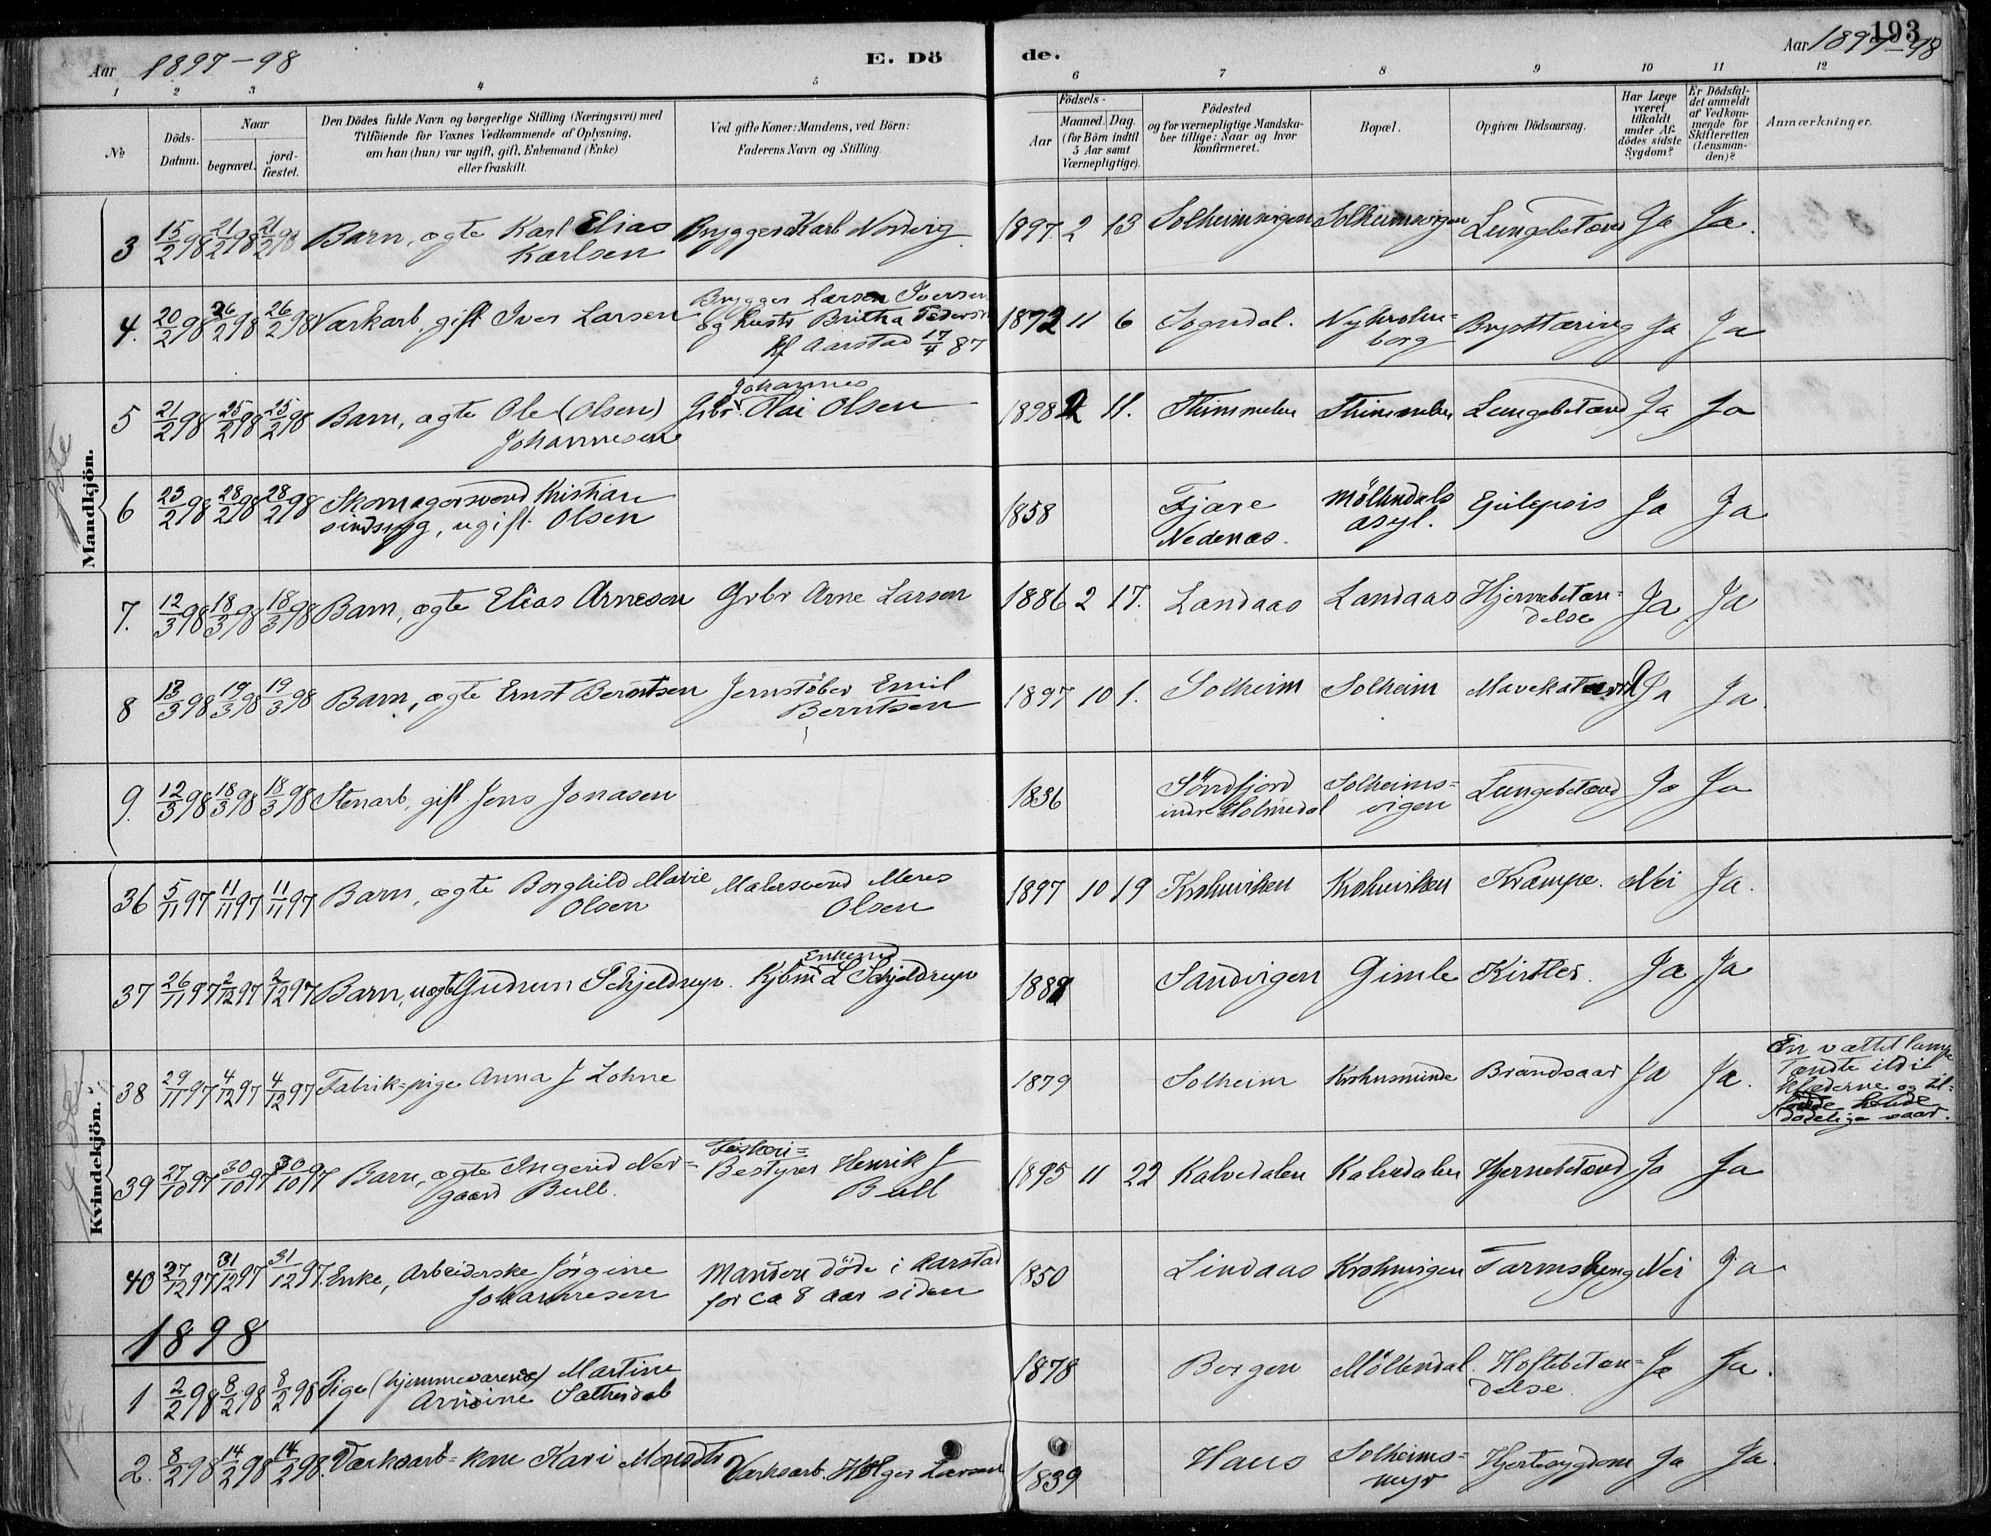 193
Aar 1897-98 E. Dö de. Aar 1897-98
1 2 3 4 5 6 7 8 9 10 11 12
No. Döds-Datum. Naar begravet. jord-fæstet. Den Dödes fulde Navn og borgerlige Stilling (Næringsvei) med Tilföiende for Voxnes Vedkommende af Oplysning, om han (hun) var ugift, gift, Enkemand (Enke) eller fraskilt. Ved gifte Koner: Mandens, ved Börn: Faderens Navn og Stilling. Födsels- Aar Maaned. Dag. (for Börn indtil 5 Aar samt Værnepligtige). Födested og for værnepligtige Mandska-ber tillige: Naar og hvor konfirmeret. Bopæl. Opgiven Dödsaarsag. Har Læge været tilkaldt under Af-dödes sidste Sygdom? Er Dödsfal-det anmeldt af Vedkom-mende for Skifteretten (Lensman-den)? Anmærkninger.
Mandkjön.
3 15/2 98 21/2 98 21/2 98 Barn, ægte Karl Elias Karlsen Brygger Karl Nordvig 1897 2 13 Solheimsvigen Solheimsvigen Lungebetænd Ja Ja.
4. 20/2 98 26/2 98 26/2 98 Værkarb, gift Iver Larsen Brygger Larsen Iversen og hustr Britha Pedersd Kf Aarstad 17/4 87 1872 11 6 Sogndal. Nykrohn=borg Brysttæring Ja Ja
5 21/2 98 25/2 98 25/2 98 Barn, ægte Ole (Olsen) Johannesen Grbr Johannes Olai Olsen 1898 2 11. Thimmelen Thimmelen Lungebetænd Ja Ja
6 23/2 98 28/2 98 28/2 98 Skomagersvend Kristian sindsyg, ugift. Olsen 1858 Fjære Nedenæs. Möllendals asyl. Epilepsis Ja Ja
7. 12/3 98 18/3 98 18/3 98 Barn, ægte Elias Arnesen Grbr Arne Larsen 1886 2 17. Landaas Landaas Hjernebetæn-delse Ja Ja
8 13/3 98 19/3 98 19/3 98 Barn, ægte Ernst Berntsen Jernstöber Emil Berntsen 1897 10 1. Solheim Solheim Mavekatarrh Ja Ja.
9. 12/3 98 18/3 98 18/3 98 Stenarb, gift Jens Jonasen 1836 Söndfjord indre Holmedal Solheims=vigen Lungebetænd Ja Ja
Kvindekjön.
36 5/11 97 11/11 97 11/11 97 Barn, ægte Borghild Marie Olsen Malersvend Meres Olsen 1897 10 19 Krohnviken Krohnviken Krampe. Nei Ja.
37 26/11 97 2/12 97 2/12 97 Barn, uægte Gudrun Schjeldrup. Kjbm Enkemd L Schjeldrup 1889 Sandvigen Gimle Kirtler. Ja Ja
38 29/11 97 4/12 97 4/12 97 Fabrik=pige Anna J Lohne 1879 Solheim Krohnsminde Brandsaar Ja Ja. En væltet lampe tændte ild i klæderne og til- dödelige saar.
39 27/10 97 30/10 97 30/10 97 Barn, ægte Ingerid Ner=gaard Bull. Fiskeri=Bestyrer Henrik J Bull 1895 11 22 Kalvedalen Kalvedalen Hjernebetænd Ja Ja
40 27/12 97 31/12 97 31/12 97. Enke, Arbeiderske Jörgine Johannesen Manden döde i Aarstad for ca 8 aar siden 1850 Lindaas Krohnvigen Tarmslyng Nei Ja
1898
1 2/2 98 8/2 98 8/2 98 Pige (hjemmeværende) Martine Arnoine Sætherdal 1878 Bergen Möllendal. Hoftebetæn=delse. Ja Ja.
2. 8/2 98 14/2 98 14/2 98. Værksarb=kone Kari Monsdtr Værksarb. Holger Larsen 1839 Haus Solheims=myr Hjertesygdom Ja Ja.